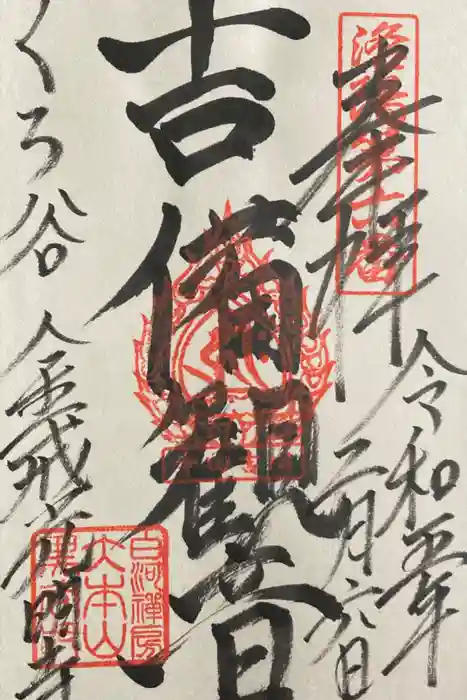 奉拝
洛陽第六番
令和年二月六日
吉備観音
くろ谷 金戒光明寺
白河禅房
大本山